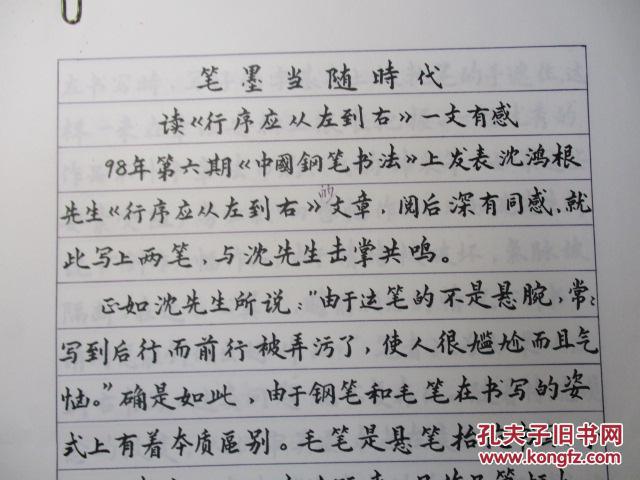 笔墨当随時代
读《行序应从左到右》一文有感
98年第六期《中國鋼笔书法》上发表沈鸿根
先生《行序应从左到右》的文章，阅后深有同感，就
此写上两笔，与沈先生击掌共鸣。
正如沈先生所说："由于运笔的不是悬腕，常:
写到后行而前行被弄污了，使人很尴尬而且气
恼。"确是如此，由于钢笔和毛笔在书写的姿
式上有着本质區别。毛笔是悬笔抬
孔夫子旧书网
www.kongfz.com